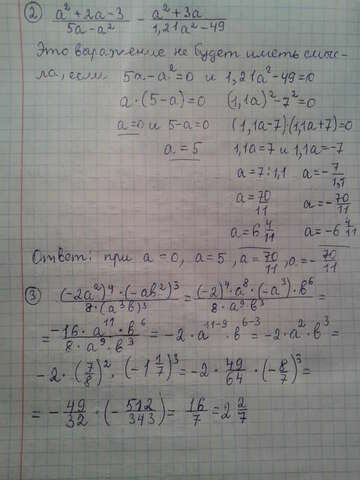 ② (a²+2a-3)/(5a-a²) - (a²+3a)/(1,21a²-49)
Это выражение не будет иметь смыс-
ла, если 5a-a²=0 и 1,21a²-49=0
a·(5-a)=0 (1,1a)²-7²=0
a=0 и 5-a=0 (1,1a-7)·(1,1a+7)=0
a=5 1,1a=7 и 1,1a=-7
a=7:1,1 a=-7/1,1
a=70/11 a=-70/11
a=6 4/11 a=-6 4/11
Ответ: при a=0, a=5, a=70/11, a=-70/11
③ ((-2a²)⁴·(-ab²)³)/(8·(a³b)³) = ((-2)⁴·a⁸·(-a³)·b⁶)/(8·a⁹b³) =
= (-16·a¹¹·b⁶)/(8·a⁹·b³) = -2·a¹¹⁻⁹·b⁶⁻³ = -2·a²·b³ =
-2·(7/8)²·(-1 1/7)³ = -2·49/64·(-8/7)³ =
= -49/32·(-512/343) = 16/7 = 2 2/7